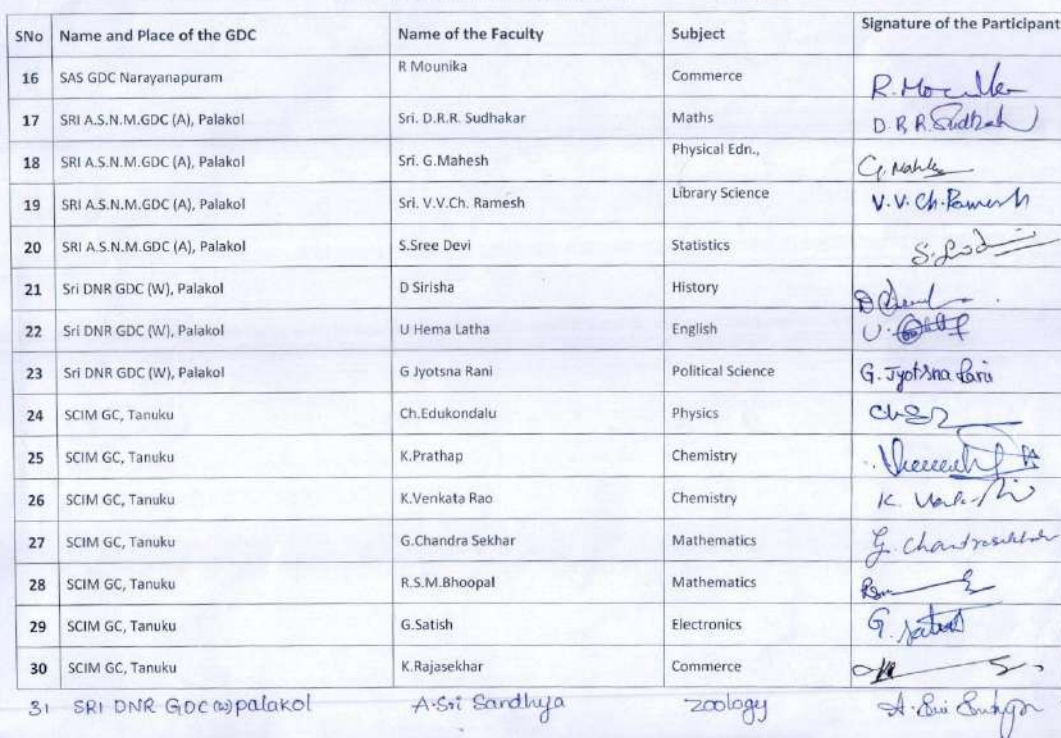 SNo Name and Place of the GDC Name of the Faculty Subject Signature of the Participant
16 SAS GDC Narayanapuram R Mounika Commerce
17 SRI A.S.N.M.GDC (A), Palakol Sri. D.R.R. Sudhakar Maths D.R.R.
18 SRI A.S.N.M.GDC (A), Palakol Sri. G.Mahesh Physical Edn.,
19 SRI A.S.N.M.GDC (A), Palakol Sri. V.V.Ch. Ramesh Library Science V.V.Ch.Ramesh
20 SRI A.S.N.M.GDC (A), Palakol S.Sree Devi Statistics
21 Sri DNR GDC (W), Palakol D Sirisha History
22 Sri DNR GDC (W), Palakol U Hema Latha English
23 Sri DNR GDC (W), Palakol G Jyotsna Rani Political Science G. Jyotsna Rani
24 SCIM GC, Tanuku Ch.Edukondalu Physics
25 SCIM GC, Tanuku K.Prathap Chemistry
26 SCIM GC, Tanuku K.Venkata Rao Chemistry
27 SCIM GC, Tanuku G.Chandra Sekhar Mathematics G. Chandrasekhar
28 SCIM GC, Tanuku R.S.M.Bhoopal Mathematics
29 SCIM GC, Tanuku G.Satish Electronics G. Satish
30 SCIM GC, Tanuku K.Rajasekhar Commerce
31 SRI DNR GDC (W) palakol A.Sri Sandhya zoology